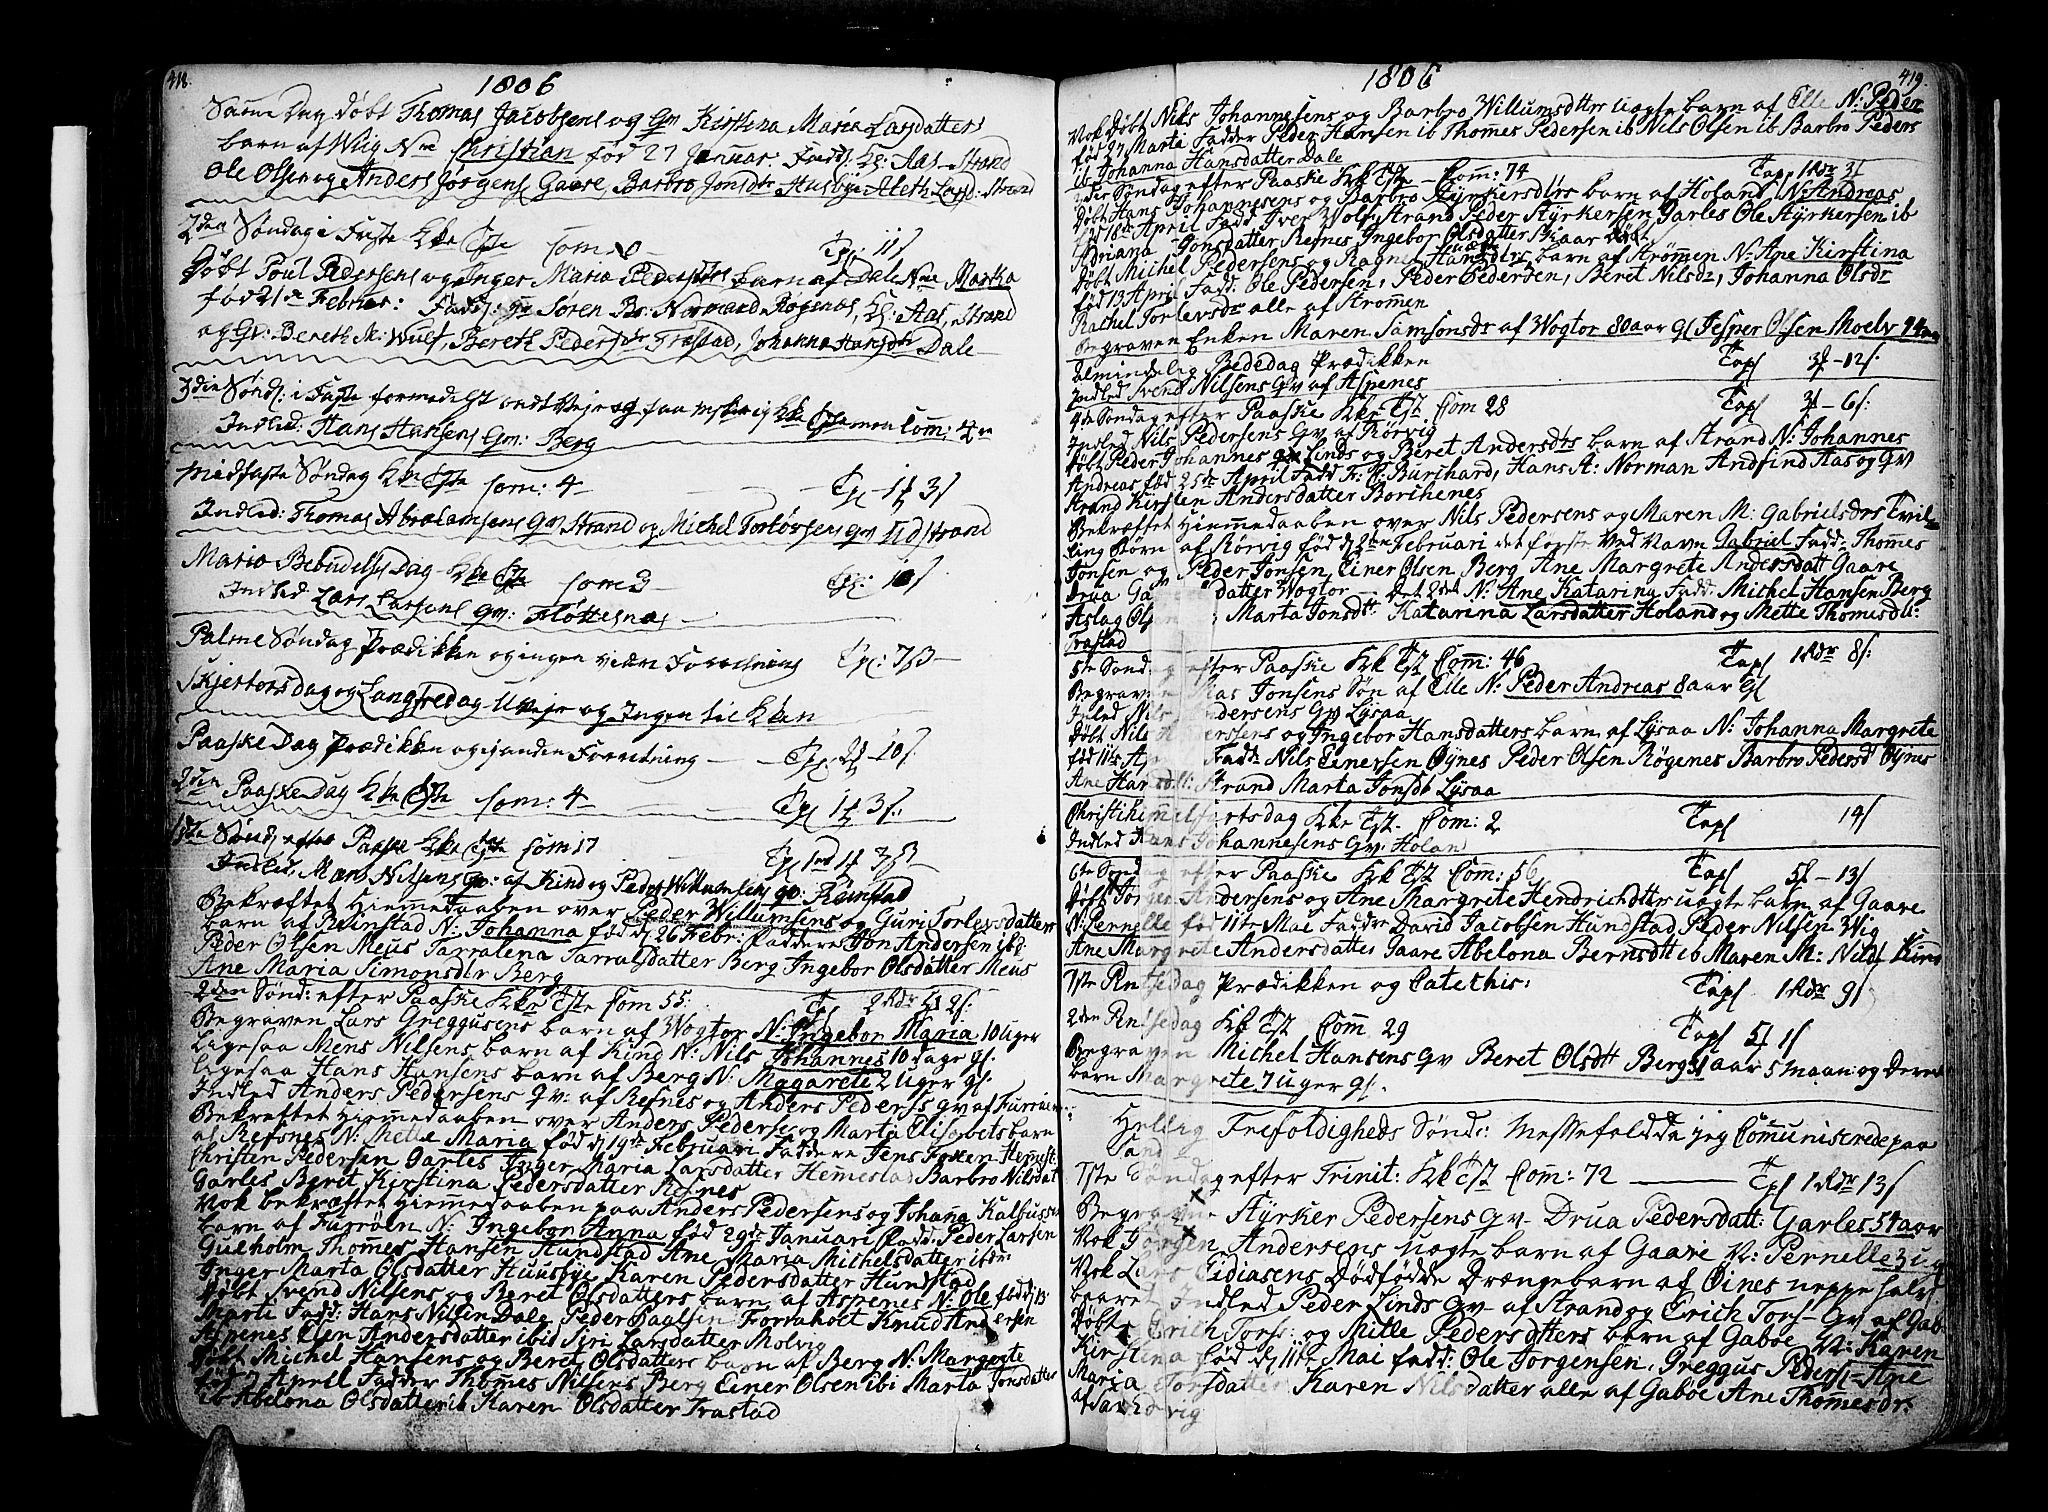 418.
1806
Samme Dag døbt Thomas Jacobsens og Qv Kirstina Maria Larsdatters
barn af Wiig Nvn Christian fød 27 Januar. Fadd: Hs: Aas, Strand
Ole Olsen og Anders Jørgens: Gaare, Barbro Jonsdtr Husbye Aleth Larsd: Strand
2den Søndag i Faste Kke Tste Com: 0 Tpl: 11s
Døbt Poul Pedersens og Inger Maria Pedersdtrs barn af Dale Nvn Martha
fød 21de Februar: Fadd: Søren Bs: Normand Røgenes, Hs: Aas, Strand
og Qv: Bereth M: Wulf, Bereth Pedersdtr Trastad, Johanna Hansdtr Dale
3die Sønd: i Faste formedelst ondt Vejr og faa Mennisker ig Kke Tste men Com: 4re
Indled: Hans Hansens Qv: Berg
Midfaste Søndag Kke Tste Com: 4 Tpl 1f 3s
Indled: Thomas Abrahamsens Qv Strand og Michel Torlørsens Qv ud Strand
Maria Bebudelses Dag Kke Tste Com 3 Tpl: 10s
Indled Lars Larsens Qv: Fløttesnæs
Palme Søndag Prædikken og ingen videre Forretning Tpl: 7s
Skjertorsdag og Langfredag Uvejr og Ingen til Kken
Paaske Dag Prædikken og ej anden Forretning Tpl 2f 10s
2den Paaske Dag Kke Tste Com: 4 Tpl 1f 3s:
1ste Sønd: efter Paaske Kke Tste Com 17 Tpl 1rd 1f 7s
Indled, Mæns Nilsens Qv: af Kind og Peder Willumsens Qv: Reinstad
Bekræftet Hiemmedaaben over Peder Willumsens og Guri Torlefsdatters
barn af Reinstad N: Johanna fød d 26 Febr: Faddere Jon Andersen ibd:
Peder Olsen Meus Tarralena Tarralsdatter Berg Ingebor Olsdatter Meus
Ane Maria Simonsdr Berg
2den Sønd: efter Paaske Kke Tste Com 55: Tpl 2Rdr 2s:
Begraven Lars Greggusens barn af Wogtor N: Ingebor Maria 10 uger
Ligesaa Mens Nilsens barn af Kind N: Nils Johannes 10 dage gl:
Ligesaa Hans Hansens barn af Berg N: Magarete 2 uger gl:
Indled Anders Pedersens Qv: af Refnes og Anders Pederss Qv af Furrøen
Bekreftet Hiemmedaaben over Anders Pederse og Marta Elisabets barn
af Refsnes N: Mette Maria fød d 19de Februari Faddere Jens Foxen Hemest:
Christen Pedersen Garles Inger Maria Larsdatter Hemestad Barbro Nilsdat
Garles Beret Kirstina Pedersdatter Refnes
Nok bekræftet Hiemmedaaben paa Anders Pedersens og Johana Kalfussen
barn af Furrøen N: Ingebor Anna fød 29de Januari Fadd: Peder Larsen
Gulholm Thomes Hansen Hundstad Ane Maria Michelsdatter ibm
Inger Marta Olsdatter Huusbye Karen Pedersdatter Hundstad
Døbt Svend Nilsens og Beret Olsdatters barn af Aspenes N: Ole fød d 13
Marti Fadd: Hans Nilsen Dale Peder Paalsen Forraholt Knud Andersen
Aspenes Elen Andersdatter ibid Siri Larsdatter Molvig
Døbt Michel Hansens og Beret Olsdatters barn af Berg N: Margrete
fød 7 Aprell Fadder Thomes Nilsens Berg Einer Olsen ibi Marta Jonsdatter
ib Abelona Olsdatter ib Karen Olsdatter Trastad
419.
1806
Nok Døbt Nils Johannesens og Barbro Willumsdtrr uægte barn af Elle N: Peder
fød 27 Marti Fadder Peder Hansen ib Thomes Pedersen ib Nils Olsen ib Barbro Peders
ib Johanna Hansdatter Dale
3die Søndag efter Paaske Kk Tste Com: 74 Tapl 1Rdr 3f
Døbt Hans Johannesens og Barbro Styrkersdtrs barn af Holand N: Andreas
fød 18de April Fadd Iver Wolf Strand Peder Styrkersen Garles Ole Styrkersen ib
Adriana Jonsdatter Refnes Ingebor Olsdatter
Døbt Michel Pedersens og Ragnel Hansdtrs uægte barn af Strømen N: Ane Kierstina
fød 13 April Fadd. Ole Pedersen, Peder Pedersen, Beret Nilsdr, Johanna Olsdr
Rachel Torlevsdr alle af Strømen
Begraven Enken Maren Samsonsdr af Wogtor 80 aar gl Jesper Olsen Moelv 74 aar
Almindelig Bededag Prædikken Tapl 3f-12s:
Indled Svend Nilsens Qv af Aspenes
4de Søndag efter Paaske Kke Tst Com 28 Tapl 3f-6s:
Indled Nils Pedersens Qv af Rørvig
Døbt Peder Johannes Linds og Beret Andersdtrs barn af Strand N: Johannes
Andreas fød 25de April Fadd F: C: Burchard, Hans A: Norman Andfind Aas og Qv
Strand Kirsten Andersdatter Borchenes
Bekræftet Hiemmedaaben over Nils Pedersens og Maren M: Gabrielsdrs Tvil-
ling børn af Rørvig fød d 2den Februari det første ved Navn Gabriel Fadd: Thomes
Jonsen og Peder Jonsen Einer Olsen Berg Ane Margrete Andersdatt Gaare
Drua Ga datter Wogtor Det 2det N: Ane Katarina Fadd: Michel Hansen Berg
Aslag Olsen Marta Jonsdtt. Katarina Larsdatter Holand og Mette Thomesdtr:
Trastad
5te Søndag efter Paaske Kk Tst Com: 46 Tapl 1Rdr 8s:
Begraven Mas Jonsens Søn af Elle N: Peder Andreas 8 aar gl
Inled Nils Andersens Qv Lysaa
Døbt Nils Andersens og Ingebor Hansdatters barn af Lysaa N: Johanna Margreta
fød 11te Ap Fadr Nils Einersen Øynes Peder Olsen Røgenes Barbro Pedersd Øynes
Ane Hansdtr: Strand Marta Jonsdtr Lysaa
Christi himelfartsdag Kke Tst. Com: 2 Tapl 14s
Indled Hans Johannesens Qv: Holand
6te Søndag efter Paaske Kk Tst Com: 56 Tapl 5f-13s
Døbt Jørgen Andersens og Ane Margrete Hendrichdtrr uægte barn af Gaare
N: Pernelle fød 11te Mai Fadder David Jacobsen Hundstad Peder Nilsen Wig
Ane Margrete Andersdatter Gaare Abelona Bernsdtt ib Maren M: Nilsd Kind
1ste Pintsedag Prædikken og Catechis: Tapl 1Rdr 9s
2den Pintsedag Kk Tst Com 29 Tapl 5f 1s
Begraven Michel Hansens Qv Beret Olsdtt Berg 31 aar 5 maan: og deres
barn Margrete 7 uger gl.
Hellig Trefoldigheds Sønd: Messefald da jeg Comunicerede paa
Sand
1ste Søndag efter Trinit: Kk Tst Com: 72 Tpl 1Rdr 13s
Begravne Styrker Pedersens Qv Drua Pedersdatt: Garles 54 aar
Nok Jørgen Andersens uægte barn af Gaare N: Pernelle 3 ug
Nok Lars Eidiasens Dødfødde Drængebarn af Øines neppe halv
baaret Indled Peder Linds Qv af Strand og Erich Tors- Qv af Gab
Døbt Erich Torss: og Mille Pedersdtters barn af Gabøe N: Karen
Kirstina fød d 11te Mai fadd: Ole Jorgensen, Greggus Peders- Ane
Maria Torsdatter Karen Nilsdatter alle af Gabøe Ane Thomesdr:
af Sandtorvig